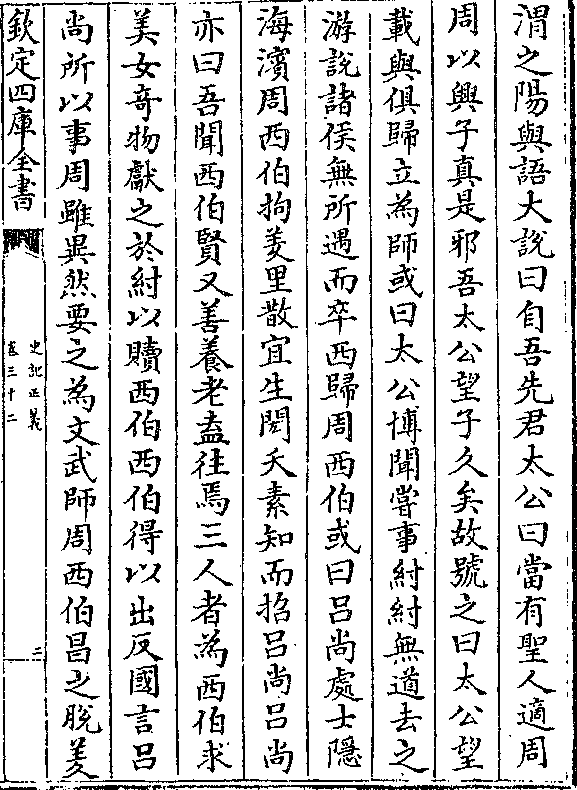 渭之陽與語大說曰自吾先君太公曰當有聖人適周
周以興子真是邪吾太公望子久矣故號之曰太公望
載與俱歸立為師或曰太公博聞嘗事紂紂無道去之
游說諸侯無所遇而卒西歸周西伯或曰呂尚處士隱
海濱周西伯拘羑里散宜生閎夭素知而招呂尚呂尚
亦曰吾聞西伯賢又善養老盍往焉三人者為西伯求
美女奇物獻之於紂以贖西伯西伯得以出反國言呂
尚所以事周雖異然要之為文武師周西伯昌之脫羑
欽定四庫全書
史記正義
卷三十二
二